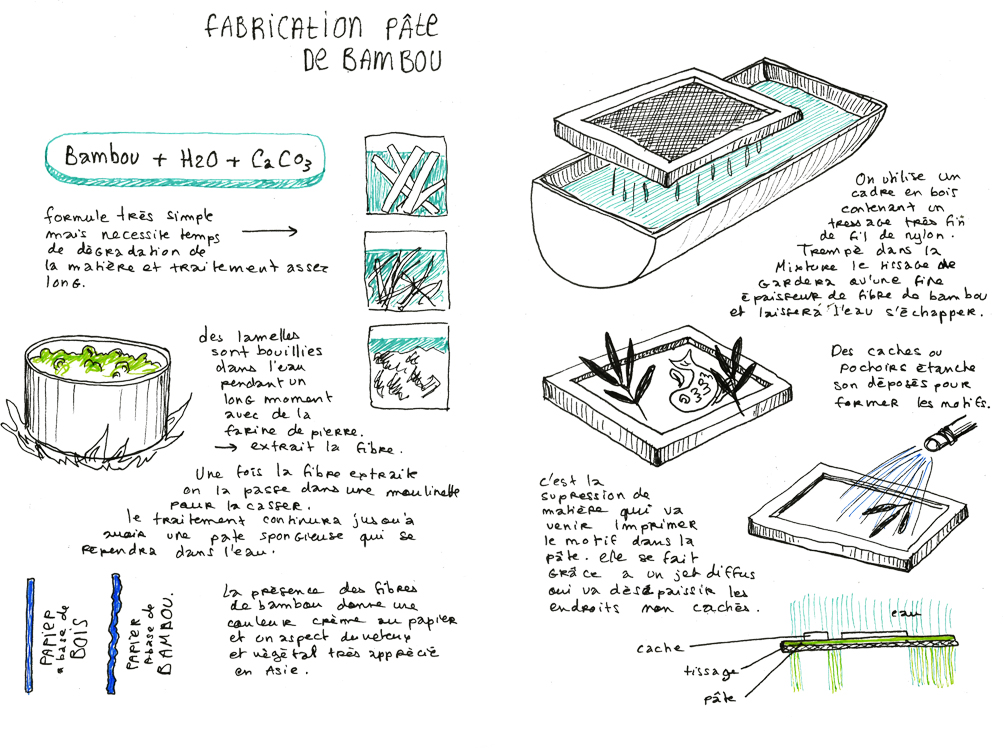 FABRICATION PÂTE
DE BAMBOU
Bambou + H2O + CaCO3
formule très simple
mais necessite temps
de dégradation de
la matière et traitement assez
long.
des lamelles
sont bouillies
dans l'eau
pendant un
long moment
avec de la
farine de pierre.
→ extrait la fibre.
Une fois la fibre extraite
on la passe dans une moulinette
pour la casser.
le traitement continura jusqu'à
avoir une pate spongieuse qui se
rependra dans l'eau.
PAPIER
à base de
BOIS
PAPIER
à base de
BAMBOU.
La présence des fibres
de bambou donne une
couleur crème au papier
et un aspect duveteux
et végétal très apprécié
en Asie.
On utilise un
cadre en bois
contenant un
tressage très fin
de fil de nylon.
Trempé dans la
Mixture le tissage ne
gardera qu'une fine
épaisseur de fibre de bambou
et laissera l'eau s'échapper.
Des caches ou
pochoirs étanche
son déposés pour
former les motifs.
c'est la
supression de
matière qui va
venir imprimer
le motif dans la
pâte. elle se fait
grâce a un jet diffus
qui va désépaissir les
endroits non cachés.
eau
cache
tissage
pâte